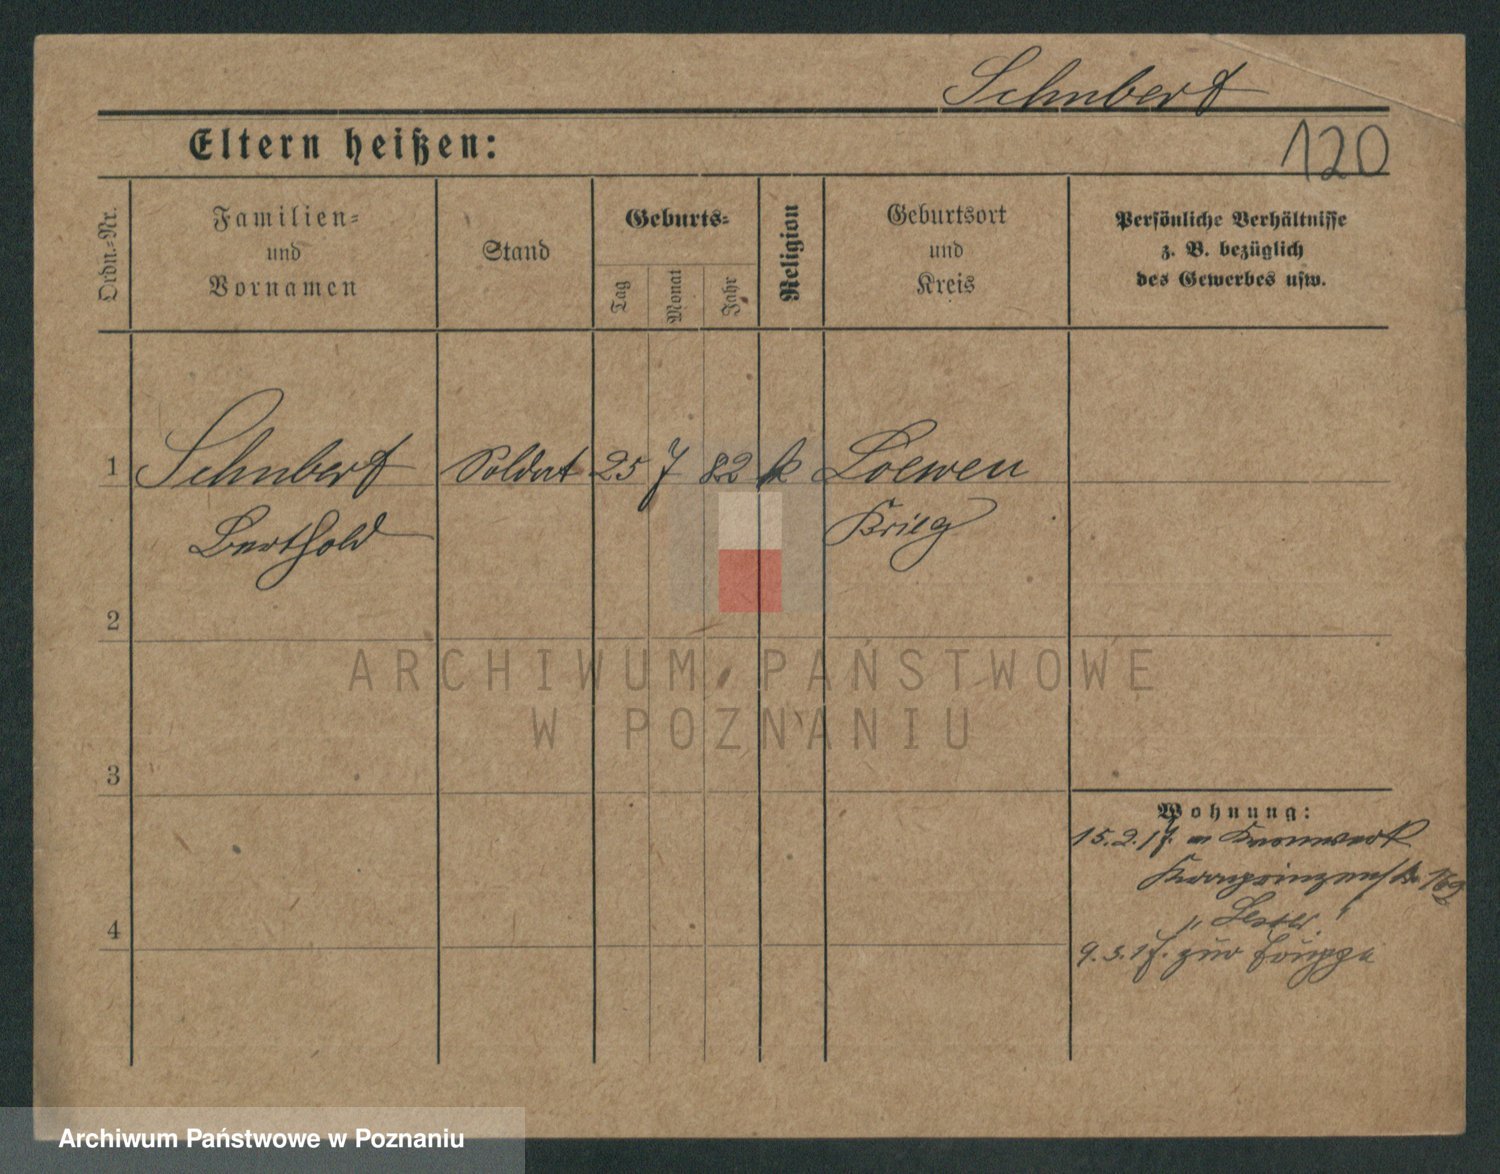 Schubert
120
Eltern heißen:
Ordn.-Nr.
Familien-
und
Vornamen
Stand
Geburts-
Tag
Monat
Jahr
Religion
Geburtsort
und
Kreis
Persönliche Verhältnisse
z. B. bezüglich
des Gewerbes usw.
1 Schubert Soldat 25 7 82 k Loewen
Berthold Brieg
2
3
4
Wohnung:
15.2.17. Kronwerk
Kronprinzenstr.
9.3.17. zur Truppe
ARCHIWUM PAŃSTWOWE
W POZNANIU
Archiwum Państwowe w Poznaniu